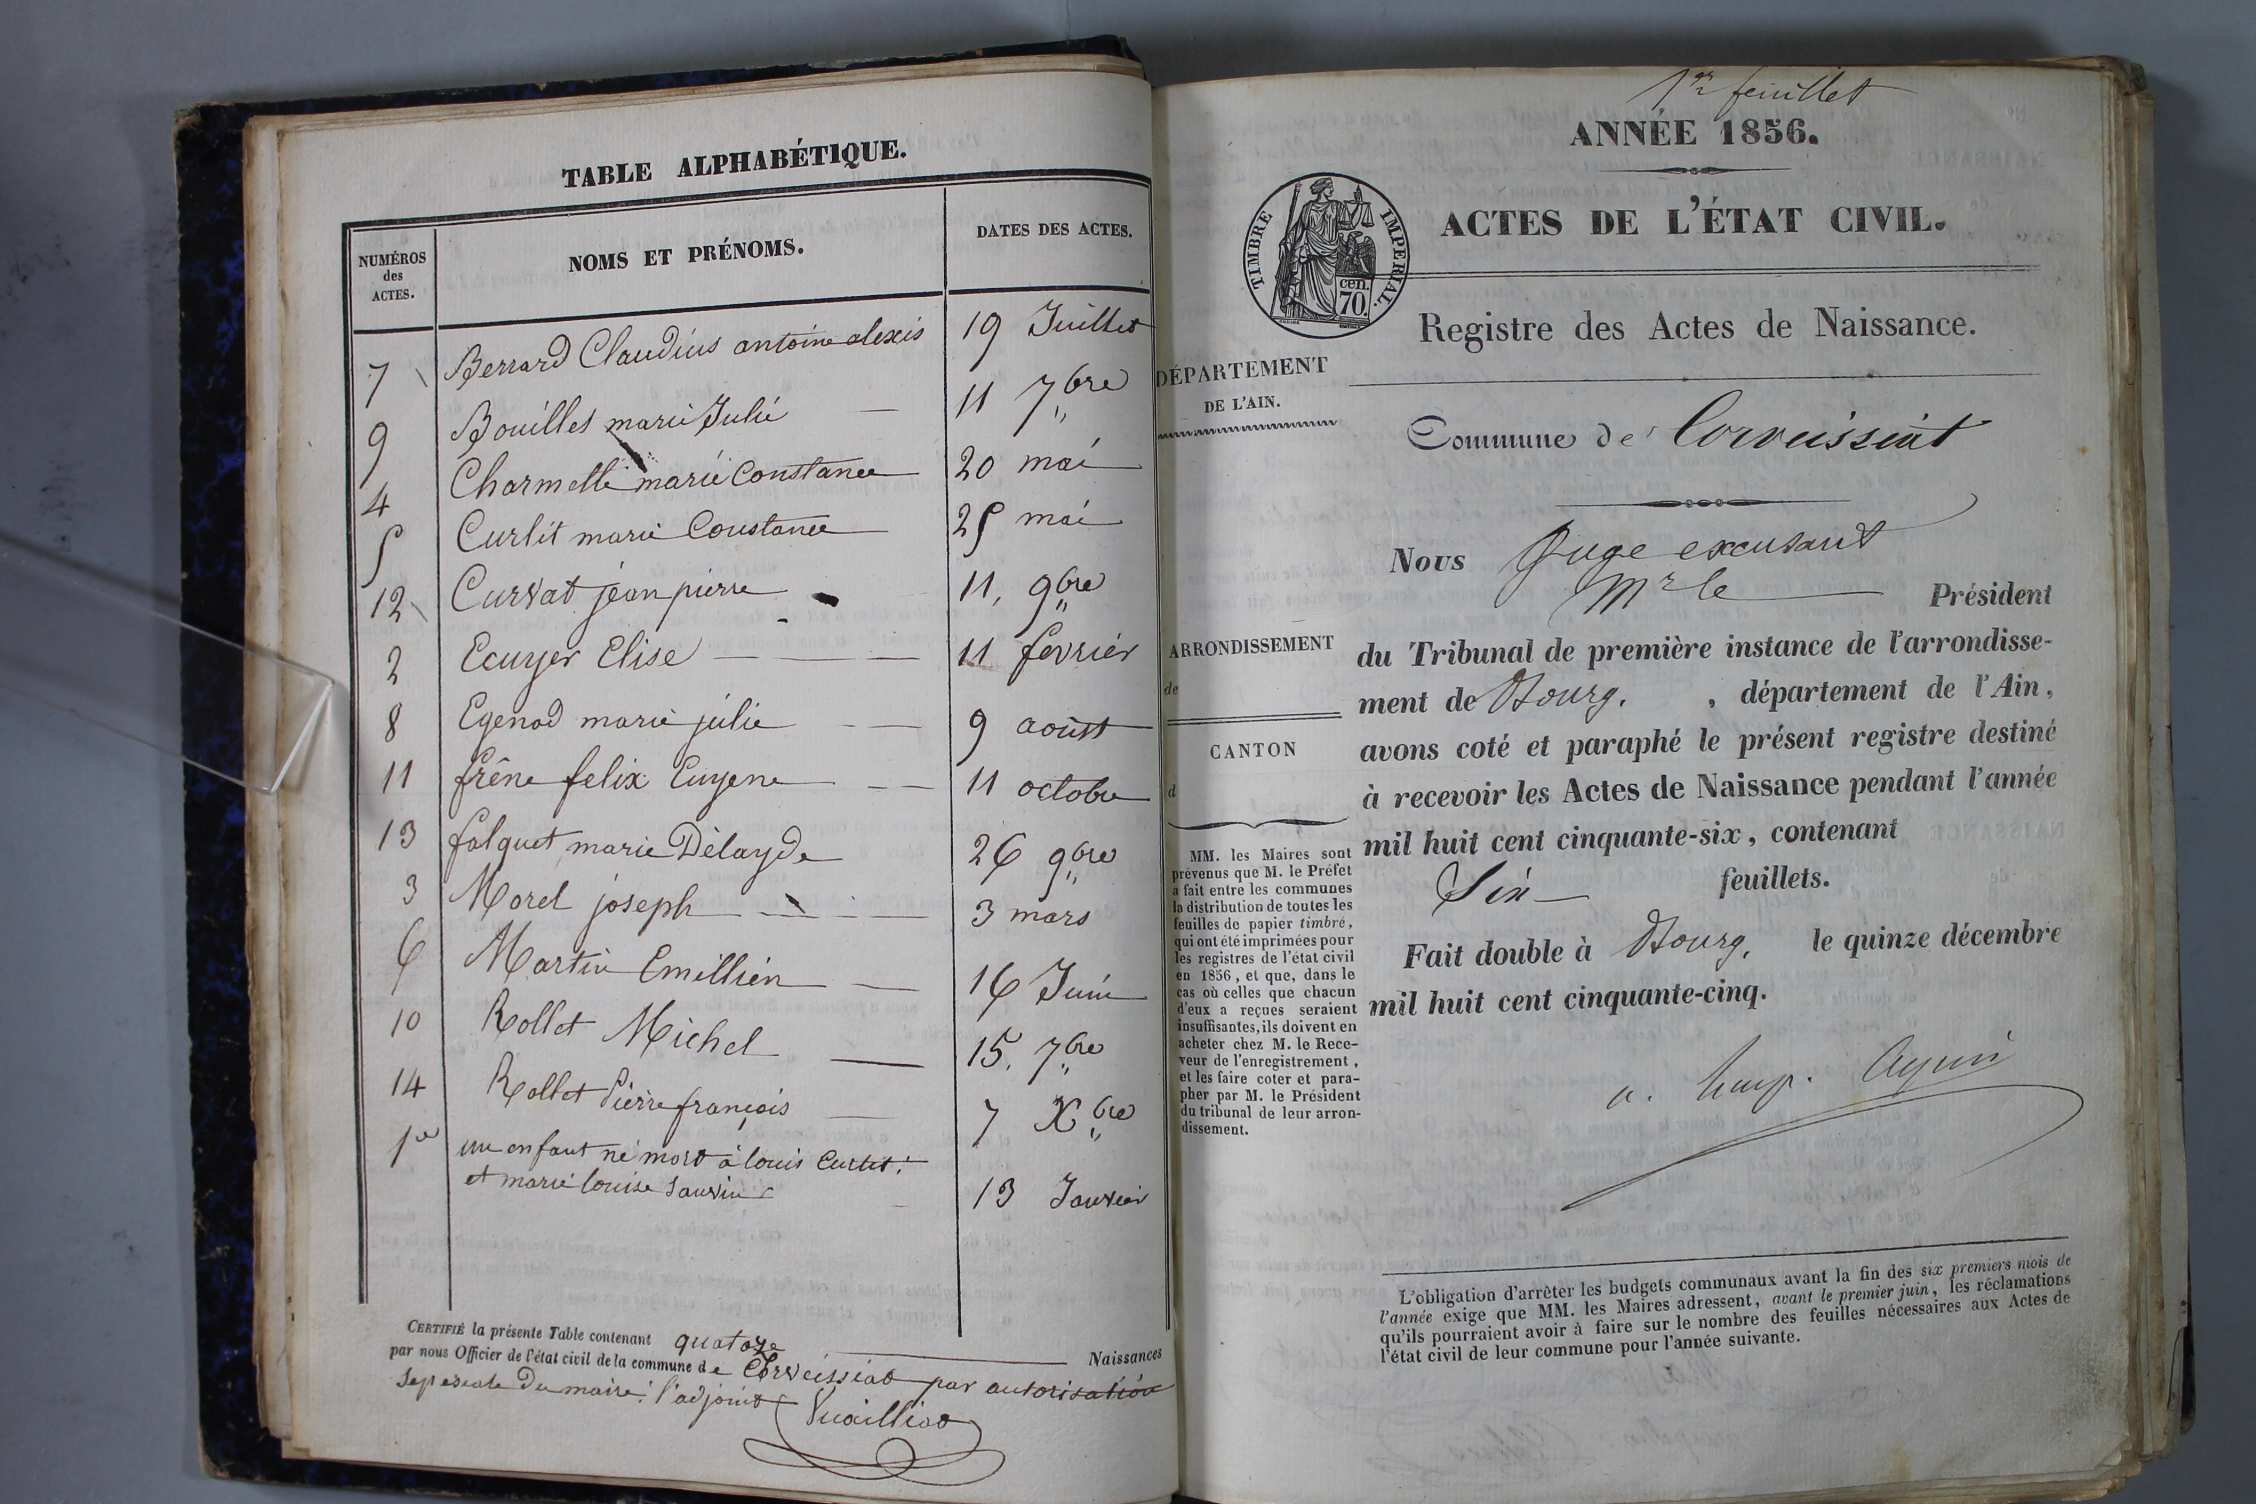 TABLE ALPHABÉTIQUE.
NUMÉROS
des
ACTES.
NOMS ET PRÉNOMS.
DATES DES ACTES.
7 Berrard Claudius antoine alexis 19 Juillet
9 Bouillet marie Julie 11 7bre
4 Charmette marie Constance 20 mai
5 Curlit marie Constance 25 mai
12 Curvat jean pierre 11, 9bre
2 Ecuyer Elise 11 février
8 Egenod marie julie 9 aoùst
11 frêne felix Eugene 11 octobre
13 falquet marie Délayde 26 9bre
3 Morel joseph 3 mars
6 Martin Emillien 16 Juin
10 Rollet Michel 15, 7bre
14 Rollet Pierre françois 7 Xbre
1er un enfant né mort à louis Curlit
et marie louise Jauvin 13 Janvier
CERTIFIÉ la présente Table contenant quatoze Naissances
par nous Officier de l'état civil de la commune de Corveissiat par autorisation
du maire: l'adjoint
Vuailliat
1er feuillet
ANNÉE 1856.
ACTES DE L'ÉTAT CIVIL.
TIMBRE IMPERIAL.
cen.
70.
Registre des Actes de Naissance.
DÉPARTEMENT
DE L'AIN.
Commune de Corveissiat
Nous Juge excusant
Mr le Président
ARRONDISSEMENT
de
CANTON
d
du Tribunal de première instance de l'arrondisse-
ment de Bourg. , département de l'Ain,
avons coté et paraphé le présent registre destiné
à recevoir les Actes de Naissance pendant l'année
mil huit cent cinquante-six, contenant
Six feuillets.
Fait double à Bourg, le quinze décembre
mil huit cent cinquante-cinq.
MM. les Maires sont
prévenus que M. le Préfet
a fait entre les communes
la distribution de toutes les
feuilles de papier timbré,
qui ont été imprimées pour
les registres de l'état civil
en 1856, et que, dans le
cas où celles que chacun
d'eux a reçues seraient
insuffisantes, ils doivent en
acheter chez M. le Rece-
veur de l'enregistrement,
et les faire coter et para-
pher par M. le Président
du tribunal de leur arron-
dissement.
L'obligation d'arrêter les budgets communaux avant la fin des six premiers mois de
l'année exige que MM. les Maires adressent, avant le premier juin, les réclamations
qu'ils pourraient avoir à faire sur le nombre des feuilles nécessaires aux Actes de
l'état civil de leur commune pour l'année suivante.